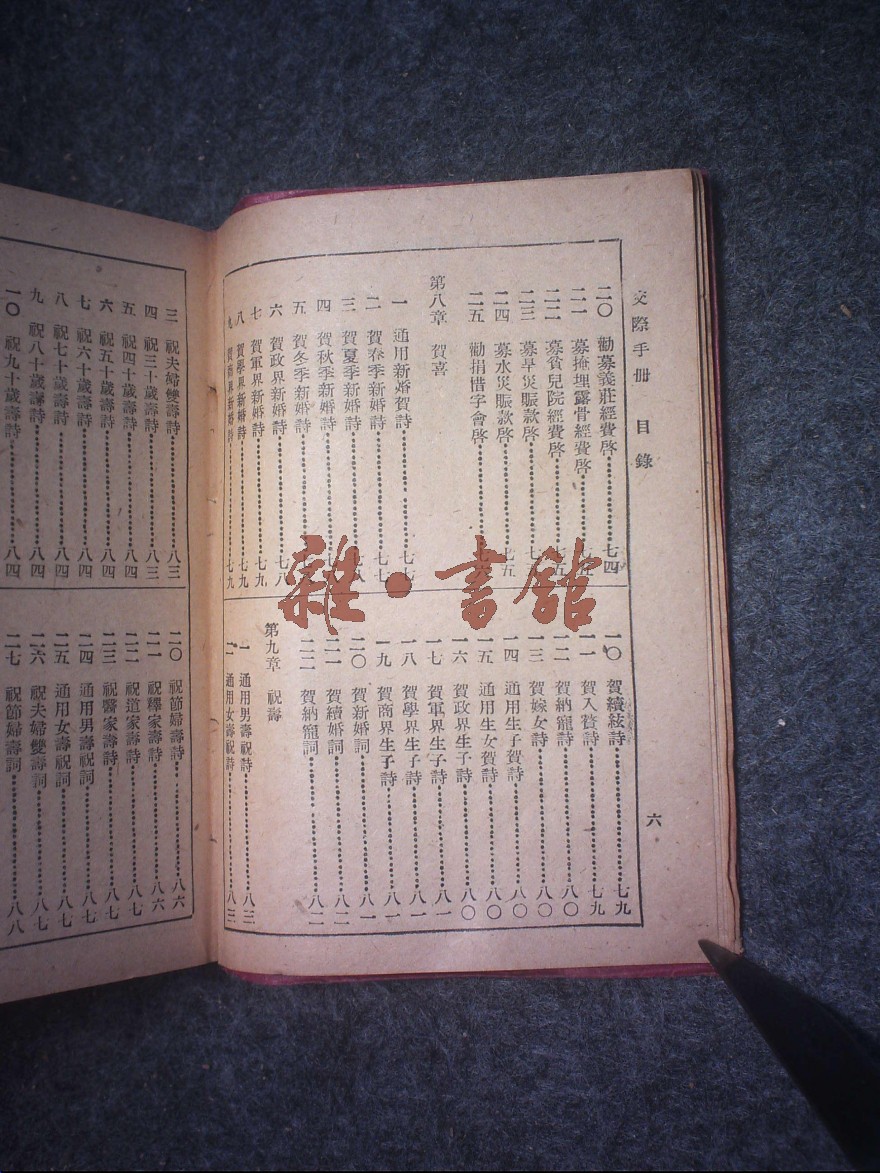 交際手册 目錄
六
二〇 勸募義莊經費啓 七四
二一 募掩埋露骨經費啓
二二 募貧兒院經費啓
二三 募旱災賑款啓
二四 募水災賑款啓 七五
二五 勸捐惜字會啓
第八章 賀喜
一 通用新婚賀詩 七七
二 賀春季新婚詩 七七
三 賀夏季新婚詩
四 賀秋季新婚詩
五 賀冬季新婚詩
六 賀政界新婚詩 七八
七 賀軍界新婚詩 七九
八 賀學界新婚詩 七九
九 賀商界新婚詩 七九
一〇 賀續絃詩 七九
一一 賀入贅詩 七九
一二 賀納寵詩 八〇
一三 賀嫁女詩 八〇
一四 通用生子賀詩 八〇
一五 通用生女賀詩 八〇
一六 賀政界生子詩 八〇
一七 賀軍界生子詩 八一
一八 賀學界生子詩 八一
一九 賀商界生子詩 八一
二〇 賀新婚詞 八一
二一 賀續婚詞 八二
二二 賀納寵詞 八二
第九章 祝壽
一 通用男壽祝詩 八三
二 通用女壽祝詩 八三
三 祝夫婦雙壽詩 八三
四 祝三十歲壽詩 八三
五 祝四十歲壽詩 八四
六 祝五十歲壽詩 八四
七 祝六十歲壽詩 八四
八 祝七十歲壽詩 八四
九 祝八十歲壽詩 八四
一〇 祝九十歲壽詩 八四
二〇 祝節婦壽詩 八六
二一 祝釋家壽詩 八六
二二 祝道家壽詩 八七
二三 祝醫家壽詩 八七
二四 通用男壽祝詞 八七
二五 通用女壽祝詞 八七
二六 祝夫婦雙壽詞 八七
二七 祝節婦壽詞 八八
雜·書館